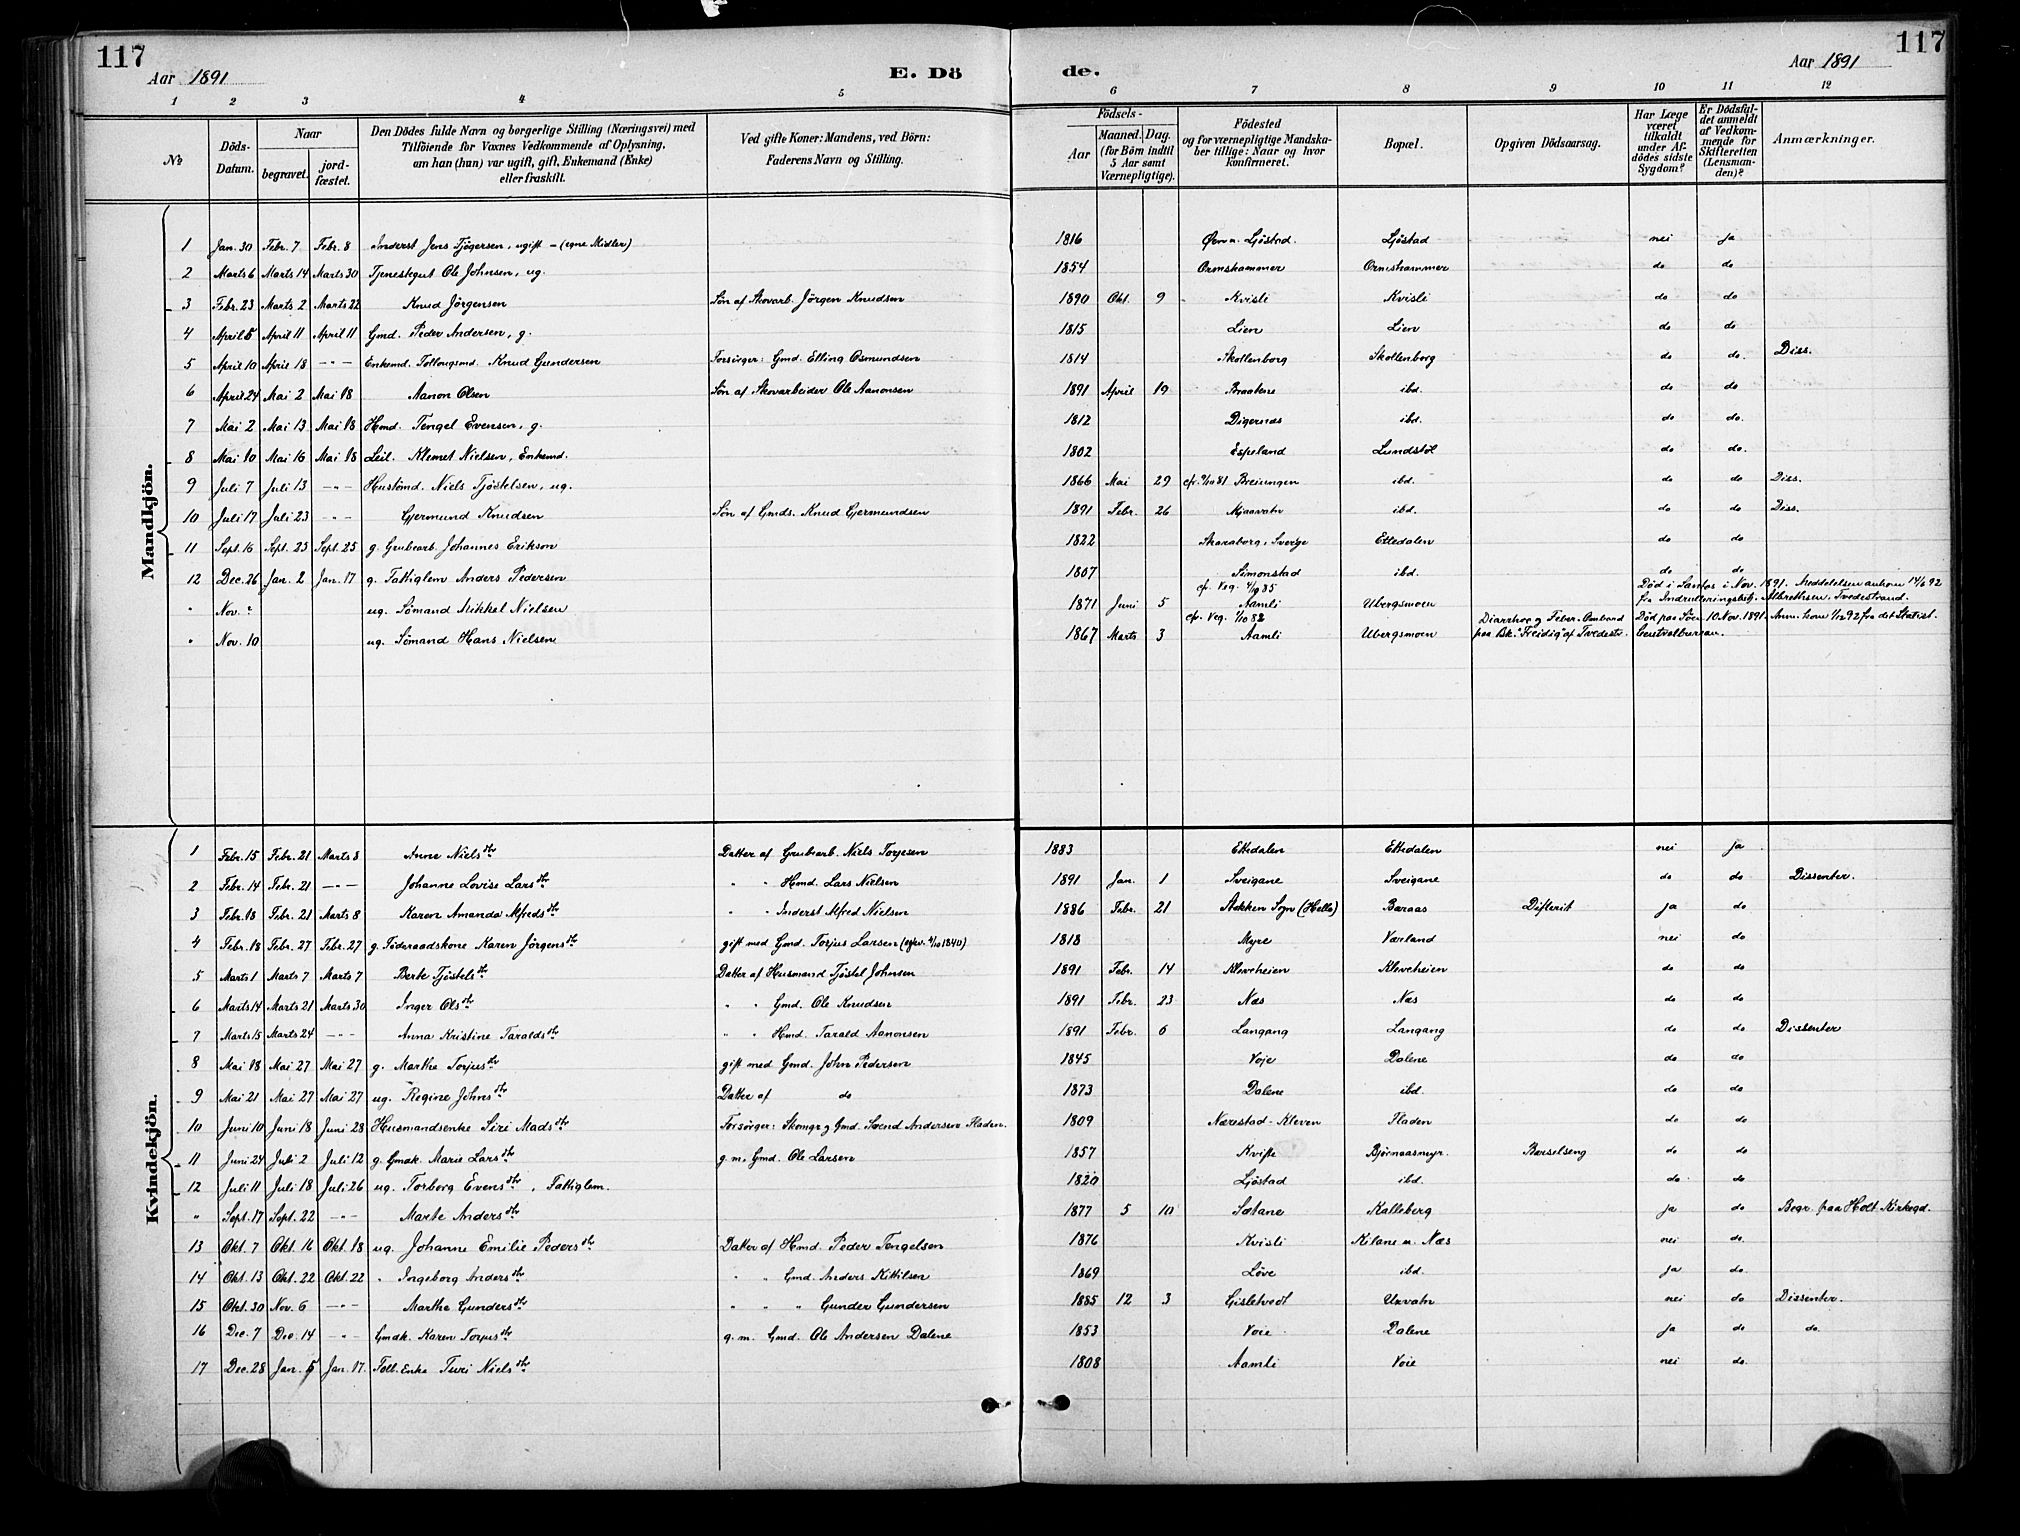 117
117
Aar 1891
E. Dö
de.
Aar 1891
1 2 3 4 5 6 7 8 9 10 11 12
№
Döds-Datum.
Naar
begravet.
jord-fæstet.
Den Dödes fulde Navn og borgerlige Stilling (Næringsvei) med
Tilföiende for Voxnes Vedkommende af Oplysning,
om han (hun) var ugift, gift, Enkemand (Enke)
eller fraskilt.
Ved gifte Koner: Mandens, ved Börn:
Faderens Navn og Stilling.
Födsels-
Aar
Maaned. Dag.
(for Börn indtil
5 Aar samt
Værnepligtige).
Födested
og for værnepligtige Mandska-
ber tillige: Naar og hvor
konfirmeret.
Bopæl.
Opgiven Dödsaarsag.
Har Læge
været
tilkaldt
under Af-
dödes sidste
Sygdom?
Er Dödsfal-
det anmeldt
af Vedkom-
mende for
Skifteretten
(Lensman-
den)?
Anmærkninger.
Mandkjön.
1 Jan. 30 Febr. 7 Febr. 8 Inderst Jens Tjøgersen, ugift - (egne Midler) 1816 Ljøstad. Ljöstad nei ja
2 Marts 6 Marts 14 Marts 30 Tjenestegut Ole Johnsen, ug. 1854 Ormshammer Ormshammer do do
3 Febr. 23 Marts 2 Marts 22 Knud Jörgensen Søn af Skovarb. Jörgen Knudsen 1890 Okt. 9 Kvisli Kvisli do do
4 April 5 April 11 April 11 Gmd. Peder Andersen, g. 1815 Lien Lien do do
5 April 10 April 18 -"- Enkemd. Follougsmd. Knud Gundersen Forsörger: Gmd. Elling Osmundsen 1814 Skollenborg Skollenborg do do. Diss.
6 April 24 Mai 2 Mai 18 Aanon Olsen Søn af Skovarbeider Ole Aanonsen 1891 April 19 Braatene ibd. do do
7 Mai 2 Mai 13 Mai 18 Hmd. Tengel Evensen, g. 1812 Digernæs ibd. do do.
8 Mai 10 Mai 16 Mai 18 Leil. Klemet Nielsen, Enkemd. 1802 Espeland Lundstöl do do.
9 Juli 7 Juli 13 -"- Hustömd. Niels Tjøstelsen, ug. 1866 Mai 29 cfr. 9/10 81 Breiungen ibd. do do Diss.
10 Juli 17 Juli 23 -"- Gjermund Knudsen Søn af Gmds. Knud Gjermundsen 1891 Febr. 26 Mjaavatn ibd. do do Diss.
11 Sept. 16 Sept. 25 Sept. 25 g. Grubearb. Johannes Erikson 1822 Skaraborg, Sverge Ettedalen do do
12 Dec. 26 Jan. 2 Jan. 17 g. Fattiglem Anders Pedersen 1807 Simonstad ibd. do do
" Nov. ? ug. Sömand Mikkel Nielsen 1871 Juni 5 cfr. Veg. 4/10 85 Aamli Ubergsmoen Död i Santos i Nov. 1891. Meddelelsen ankom 14/6 92
fra Indrulleringsbetj. Albrethsen, Tvedestrand.
" Nov. 10 ug. Sömand Hans Nielsen 1867 Marts 3 cfr. Veg. 1/10 82 Aamli Ubergsmoen Diarrhoe og Feber. Död paa Söen 10 Nov. 1891. Anm. kom 1/12 92 fra det Statist.
paa Bk. "Freidig" af Tvedestr. Centralbureau.
Kvindekjön.
1 Febr. 15 Febr. 21 Marts 8 Anne Nielsdtr Datter af Grubearb. Niels Torjesen 1883 Ettedalen Ettedalen nei ja
2 Febr. 14 Febr. 21 -"- Johanne Lovise Larsdtr " " Hmd. Lars Nielsen 1891 Jan. 1 Sveigane Sveigane do do Dissenter.
3 Febr. 18 Febr. 21 Marts 8 Karen Amanda Alfredsdtr " " Inderst Alfred Nielsen 1886 Febr. 21 Aakken Sogn (Helle) Baraas Difterit ja do
4 Febr. 18 Febr. 27 Febr. 27 g. Föderaadskone Karen Jörgensdtr gift med Gmd. Torjus Larsen 1818 Myre Værland nei do
5 Marts 1 Marts 7 Marts 7 Berte Tjöstelsdtr Datter af Husmand Tjöstel Johnsen 1891 Febr. 14 Kleveheien Kleveheien do do
6 Marts 14 Marts 21 Marts 30 Inger Olsdtr " " Gmd. Ole Knudsen 1891 Febr. 23 Næs Næs do do
7 Marts 15 Marts 24 -"- Anna Kristine Taraldsdtr " " Hmd. Tarald Aanonsen 1891 Febr. 6 Langang Langang do do Dissenter
8 Mai 18 Mai 27 Mai 27 g. Marthe Torjusdtr gift med Gmd. John Pedersen 1845 Voje Dalene do do
9 Mai 21 Mai 27 Mai 27 ug. Regine Johnsdtr Datter af do 1873 Dalene ibd. do do
10 Juni 10 Juni 18 Juni 28 Husmandsenke Siri Madsdtr Forsörger: Skomgr og Gmd. Svend Andersen Fladen. 1809 Nærestad-Kleven Fladen do do
11 Juni 24 Juli 2 Juli 12 g. Gmdk. Marie Larsdtr g.m. Gmd. Ole Larsen 1857 Kvifte Björnaasmyr. Barselseng do do
12 Juli 11 Juli 18 Juli 26 ug. Torborg Evensdtr, Fattiglem. 1820 Ljöstad ibd. do do
" Sept. 17 Sept. 22 -"- Marte Andersdtr 1877 5 10 Sætane Kalleberg ja do Begr. paa Holt Kirkegd.
13 Okt. 7 Okt. 16 Okt. 18 ug. Johanne Emilie Pedersdtr Datter af Hmd. Peder Tengelsen 1876 Kvisli Kilane u. Næs nei do.
14 Okt. 13 Okt. 22 Okt. 22 " Ingeborg Andersdtr " " Gmd. Anders Kittilsen 1869 Löve ibd. ja do.
15 Okt. 30 Nov. 6 -"- Marthe Gundersdtr " " " Gunder Gundersen 1885 12 3 Gisletvedt Urvatn nei do Dissenter.
16 Dec. 7 Dec. 14 -"- Gmdk. Karen Torjusdtr g.m. Gmd. Ole Andersen Dalene 1853 Voie Dalene ja do do.
17 Dec. 28 Jan. 5 Jan. 17. Foll. Enke Turi Nielsdtr 1808 Aamli Voie nei do.